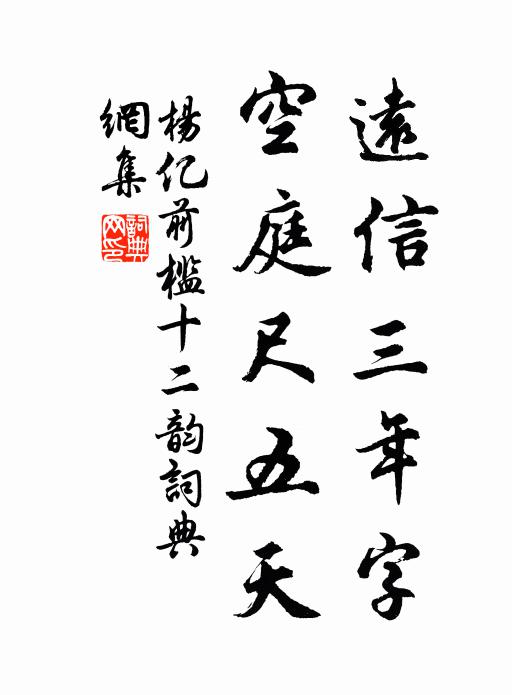 遠信三年字
空庭尺五天
楊亿前檻十二韵詞典
網集
詞典
网印